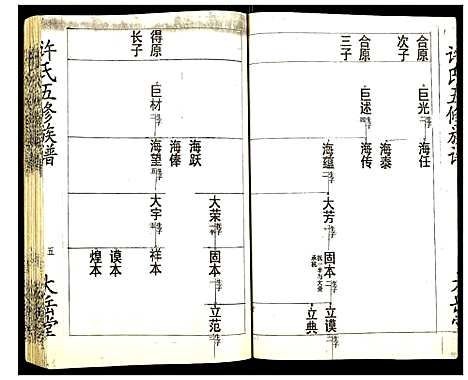 许氏五修族谱
合原
次子
巨光
海任
合原
三子
巨述
海泰
海传
海蕴
大芳
固本
承祧
立谟
立典
得原
长子
巨材
海跃
海俸
海望
大荣
大宇
固本
祥本
谟本
煌本
立范
许氏五修族谱
五
太岳堂